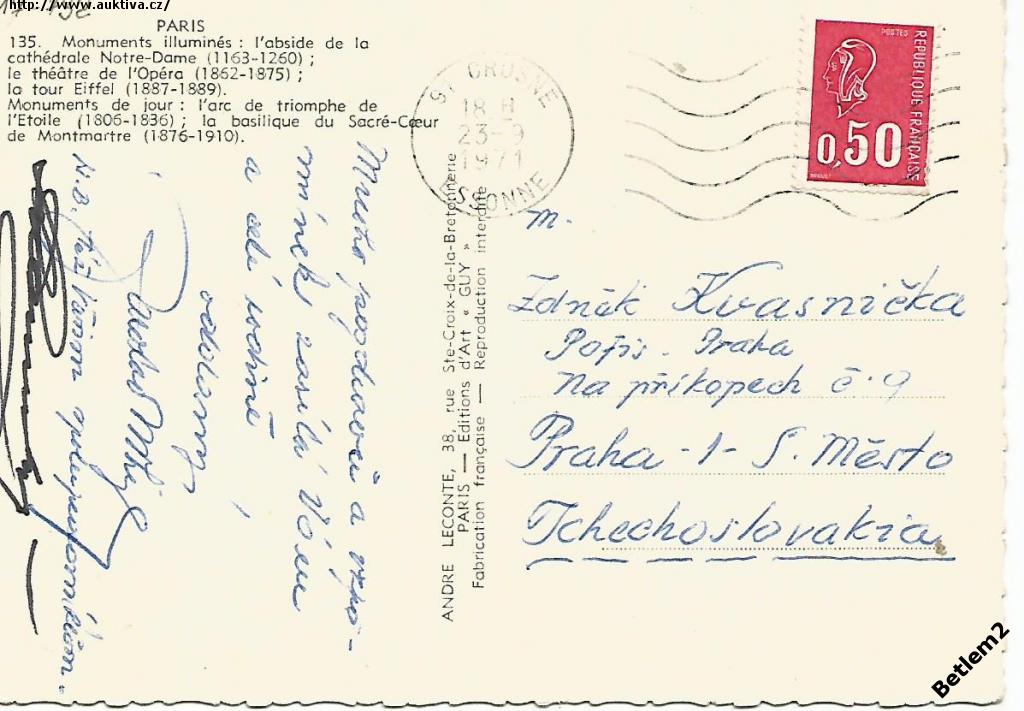 http://www.auktiva.cz/
PARIS
135. Monuments illuminés : l'abside de la
cathédrale Notre-Dame (1163-1260) ;
le théâtre de l'Opéra (1862-1875) ;
la tour Eiffel (1887-1889).
Monuments de jour : l'arc de triomphe de
l'Etoile (1806-1836) ; la basilique du Sacré-Cœur
de Montmartre (1876-1910).
Mnoho pozdravů a vzpo-
mínek zasílá Vám
a celé rodině
oddaný
N.B. též Vašim spolupracovníkům.
ANDRE LECONTE, 38, rue Ste-Croix-de-la-Bretonnerie
PARIS — Editions d'Art « GUY »
Fabrication française — Reproduction interdite
91 CROSNE
18 H
23-9
1971
ESSONNE
POSTES
REPUBLIQUE FRANÇAISE
0,50
m.
Zdněk Kvasnička
Pojis. Praha
Na příkopech č. 9
Praha -1- S. Město
Tchechoslovakia
Betlem2